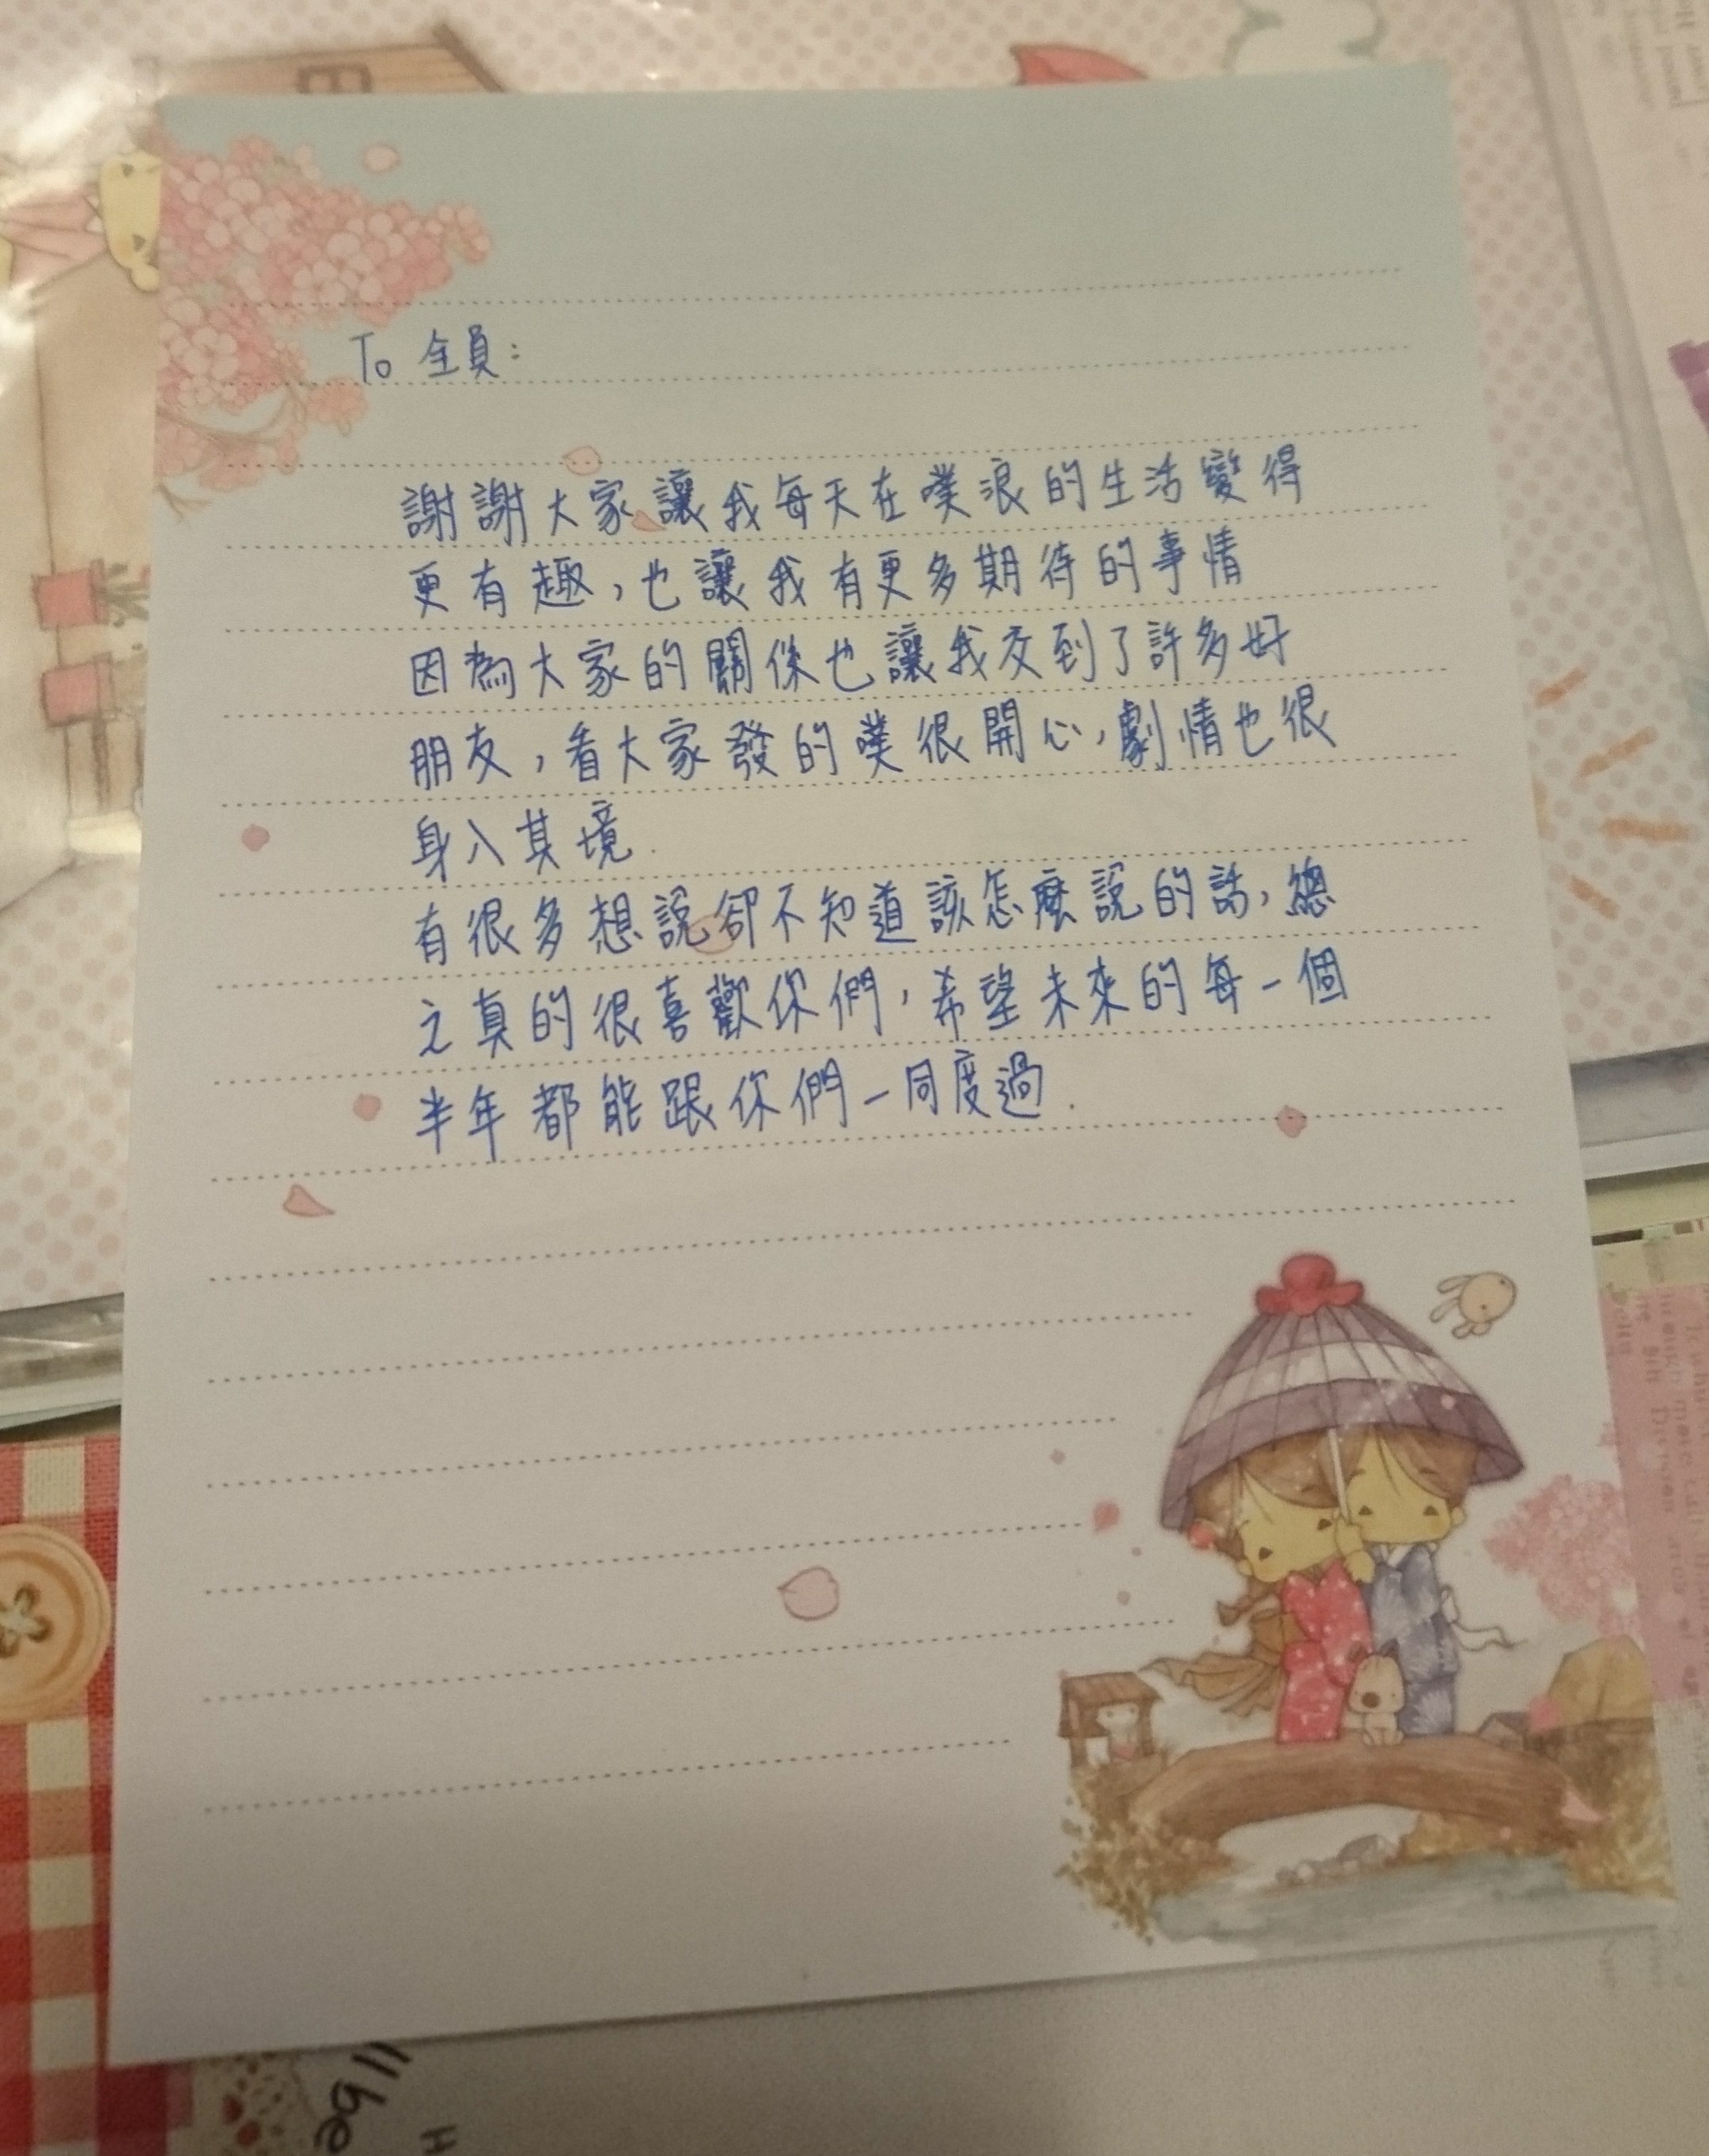 To 全員:
謝謝大家讓我每天在噗浪的生活變得
更有趣,也讓我有更多期待的事情
因為大家的關係也讓我交到了許多好
朋友,看大家發的噗很開心,劇情也很
身入其境.
有很多想說卻不知道該怎麼說的話,總
之真的很喜歡你們,希望未來的每一個
半年都能跟你們一同度過.
ll be
H